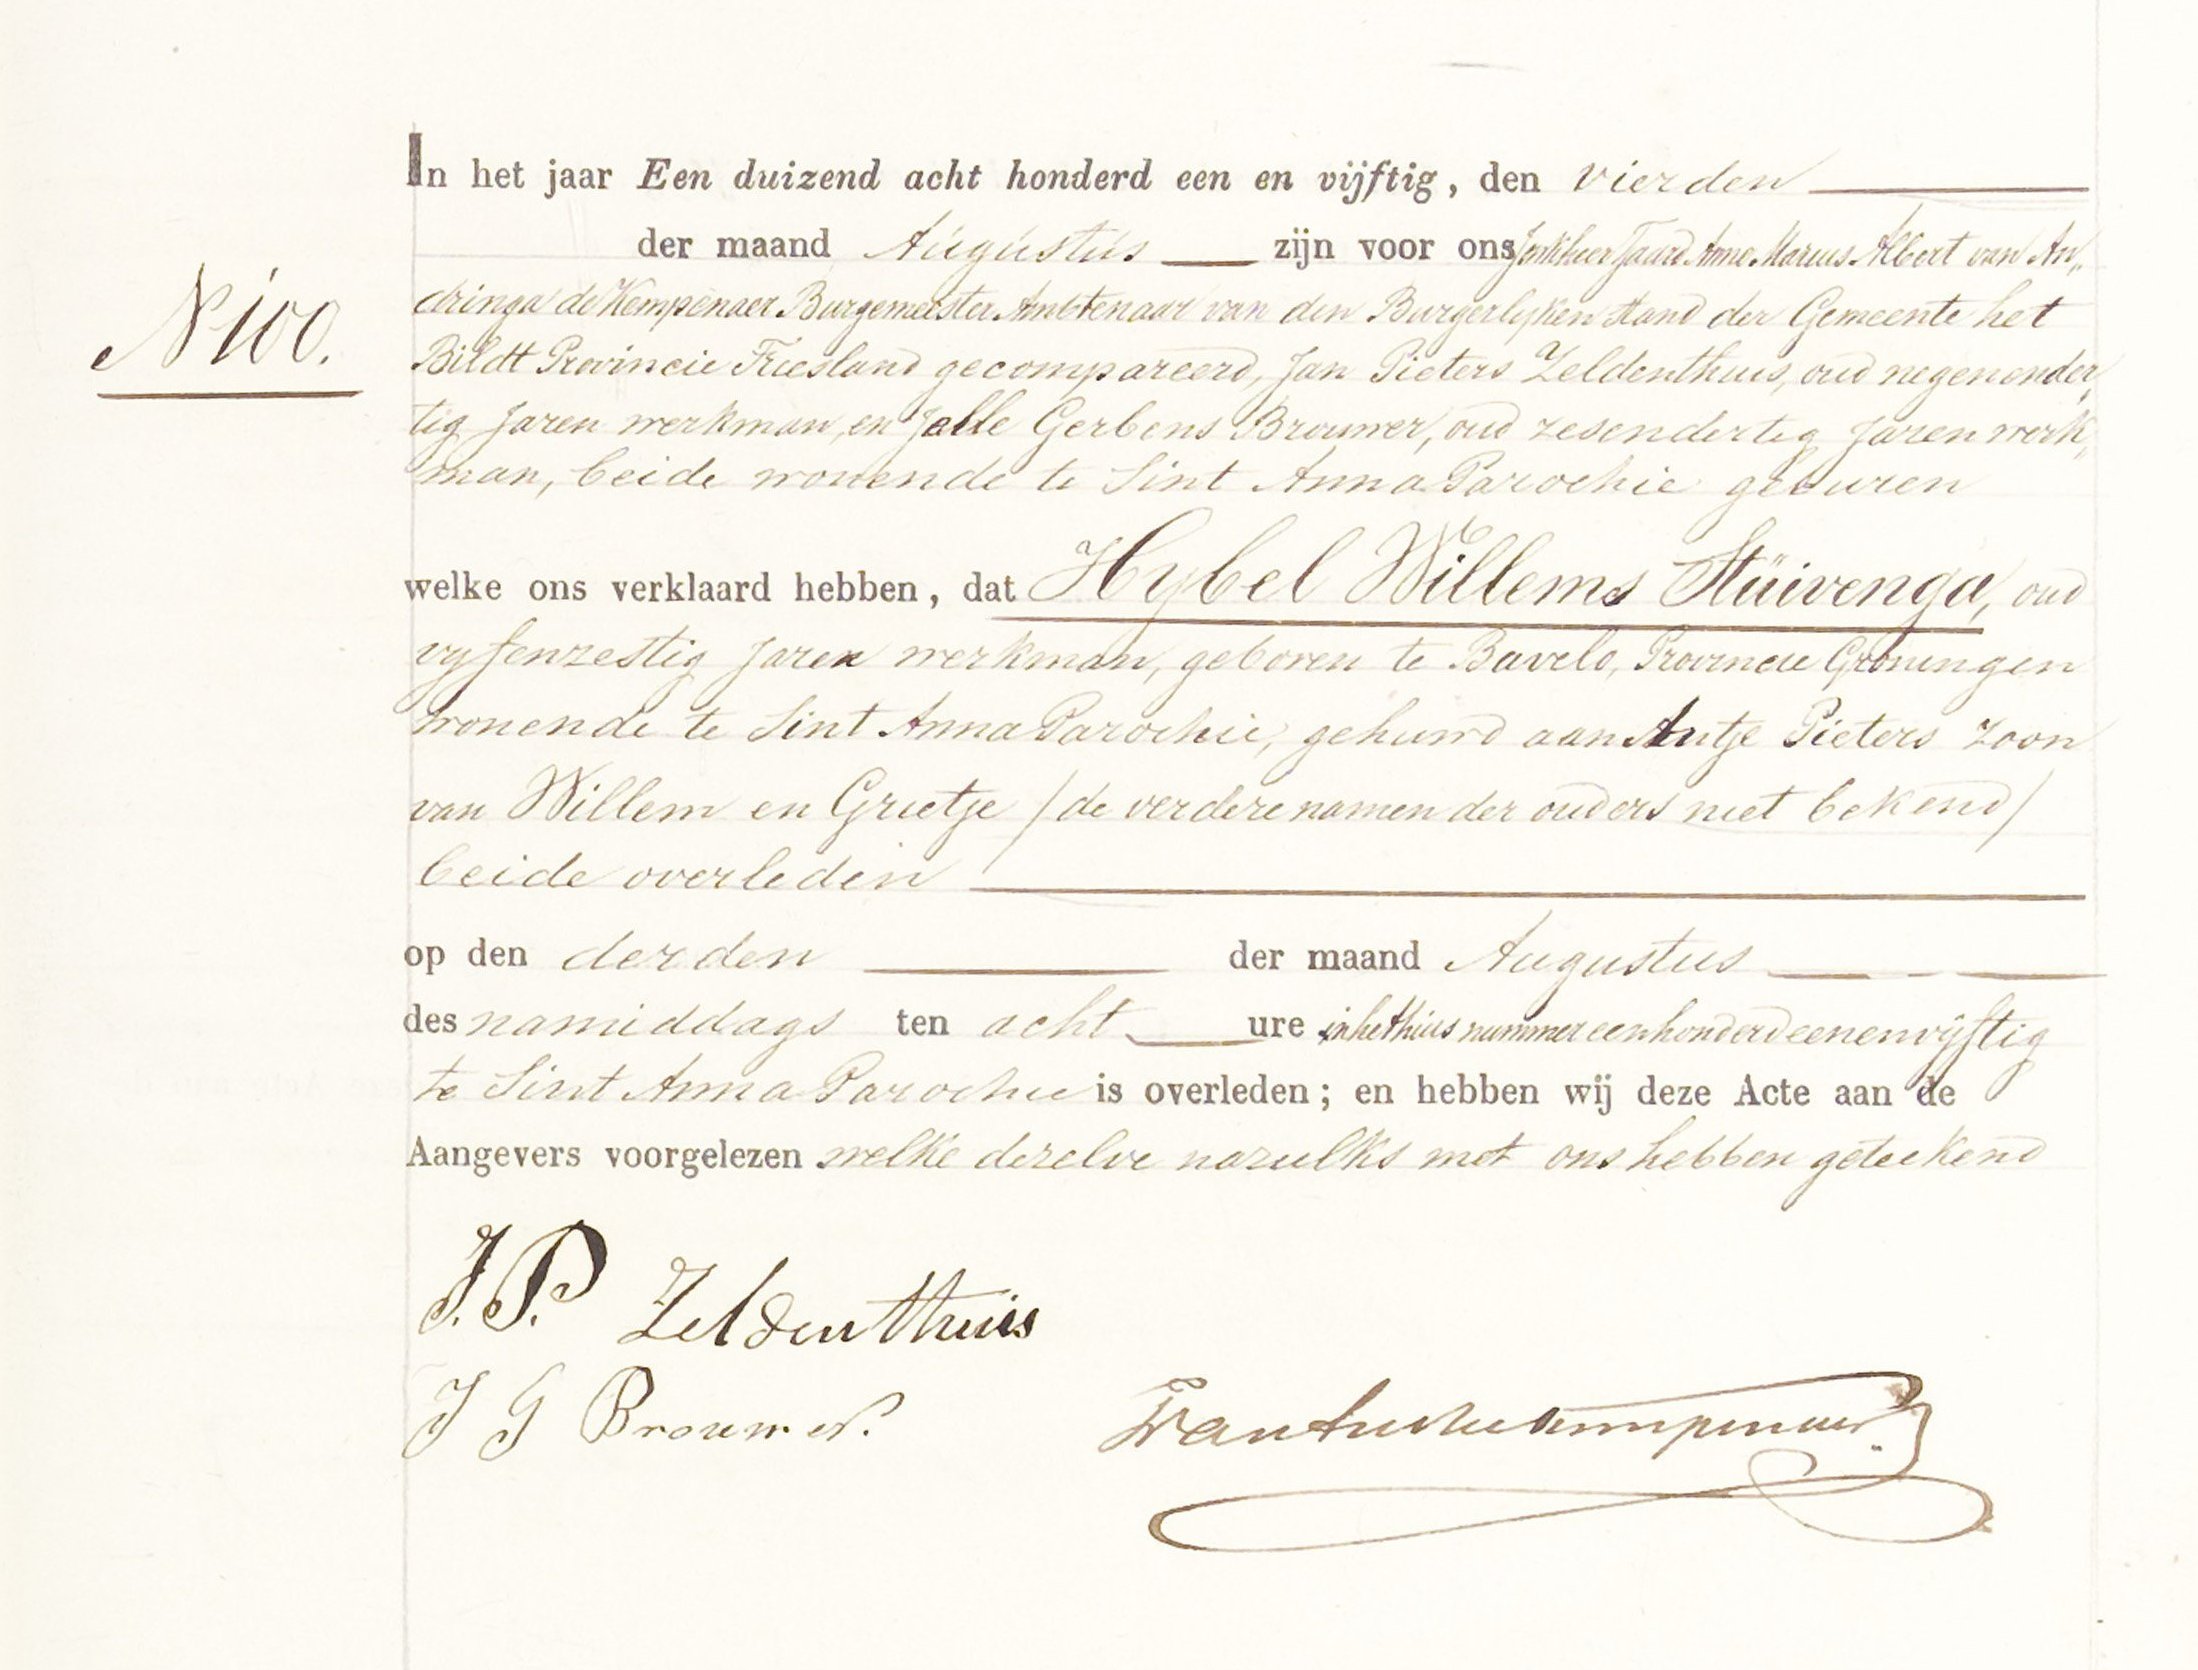 In het jaar Een duizend acht honderd een en vijftig, den vierden
der maand Augustus zijn voor ons Jonkheer Tjaard Anne Marius Albert van An„
dringa de Kempenaer Burgemeester Ambtenaar van den Burgerlyken Stand der Gemeente het
N 100.
Bildt Provincie Friesland gecompareerd, Jan Pieters Zeldenthuis, oud negenender„
tig Jaren werkman, en Jelle Gerbens Brouwer, oud zesendertig Jaren werk„
man, beide wonende te Sint Anna Parochie geburen
welke ons verklaard hebben, dat Hybel Willems Stüivenga, oud
vyfenzestig Jaren werkman, geboren te Bavelo, Provincie Groningen
wonende te Sint Anna Parochie, gehuwd aan Antje Pieters Zoon
van Willem en Grietje /de verdere namen der ouders niet bekend/
beide overleden
op den derden der maand Augustus
des namiddags ten acht ure in het huis nummer een honderd een en vijftig
te Sint Anna Parochie is overleden; en hebben wij deze Acte aan de
Aangevers voorgelezen welke dezelve nazulks met ons hebben geteekend
J. P. Zeldenthuis
J G Brouwer.